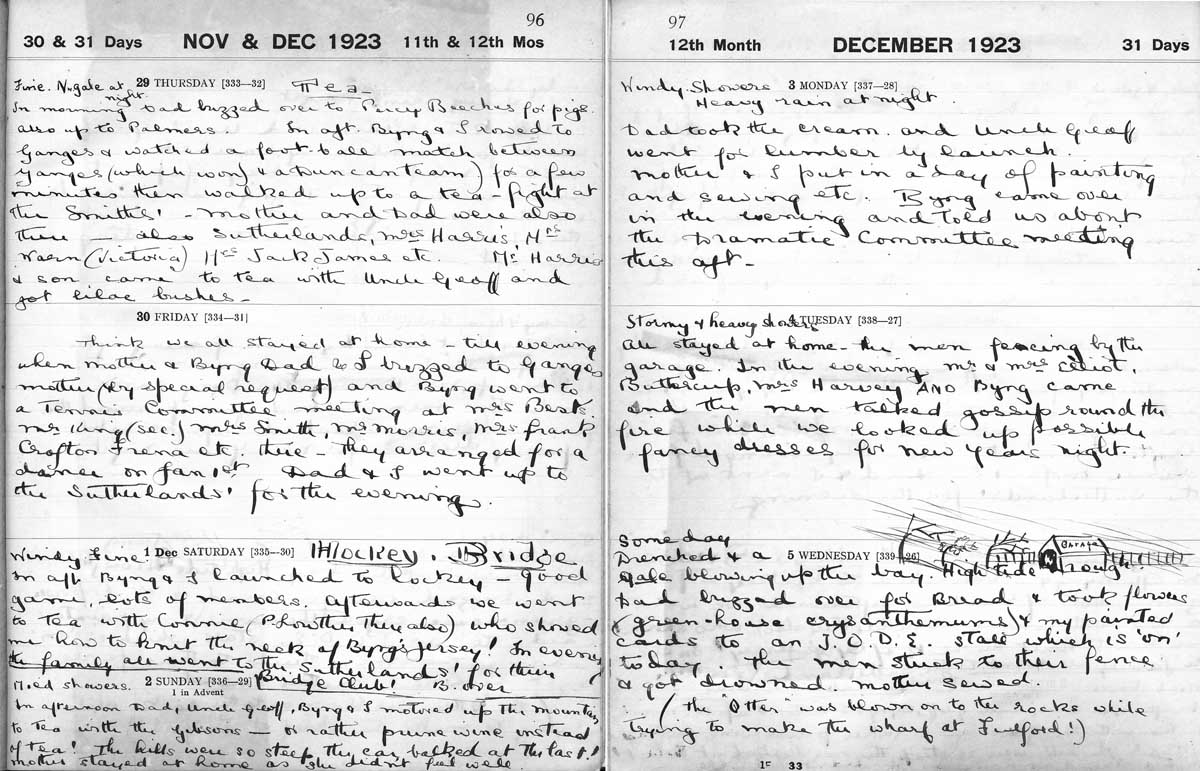 96
30 & 31 Days NOV & DEC 1923 11th & 12th Mos
29 THURSDAY [333—32] Tea
Fine. N. gale at night.
In morning Dad buzzed over to Percy Beaches for pigs.
also up to Palmers. In aft. Byng & I rowed to
Ganges & watched a foot-ball match between
Ganges (which won) & a Duncan team) for a few
minutes then walked up to a tea-fight at
the Smiths! - mother and Dad were also
there — also Sutherlands, Mrs Harris, Mrs
(Victoria) Mrs Jack James etc. Mr Harris
& son came to tea with Uncle Geoff and
got lilac bushes -
30 FRIDAY [334—31]
Think we all stayed at home - till evening
when mother & Byng Dad & I buzzed to Ganges
mother (by special request) and Byng went to
a Tennis Committee meeting at Mrs
Mr King (sec.) Mrs Smith, Mr Morris, Mrs Frank
Crofton Frena etc. there - they arranged for a
dance on Jan 1st Dad & I went up to
the Sutherlands' for the evening.
1 Dec SATURDAY [335—30] Hockey. Bridge
Windy Fine.
In aft. Byng & I launched to hockey - good
game, lots of members. Afterwards we went
to tea with Connie (they also) who showed
me how to knit the neck of Byng's jersey! In evening
the family all went to the Sutherlands' for their
Bridge Club! B. over
2 SUNDAY [336—29]
1 in Advent
Mild showers.
In afternoon Dad, Uncle Geoff, Byng & I motored up the mountain
to tea with the Gibsons — or rather prune wine instead
of tea! The hills were so steep the car balked at the last!
mother stayed at home as she didn't feel well.
97
12th Month DECEMBER 1923 31 Days
3 MONDAY [337—28]
Windy Showers
Heavy rain at night.
Dad took the cream. and Uncle Geoff
went for lumber by launch.
mother & I put in a day of painting
and sewing etc. Byng came over
in the evening and told us about
the Dramatic Committee meeting
this aft-
4 TUESDAY [338—27]
Stormy & heavy showers
All stayed at home - the men fencing by the
garage. In the evening Mr & Mrs Elliot,
Buttercup, Mrs Harvey AND Byng came
and the men talked gossip round the
fire while we looked up possible
fancy dresses for New Years night.
5 WEDNESDAY [339—26]
GARAGE
Some day
Drenched & a
gale blowing up the bay. High tide rough
Dad buzzed over for Bread & took flowers
(green-house crysanthemums) & my painted
cards to an I.O.D.E. stall which is 'on'
today. The men stuck to their fence
& got drowned. mother sewed.
(the "Otter" was blown on to the rocks while
trying to make the wharf at Fulford!)
33